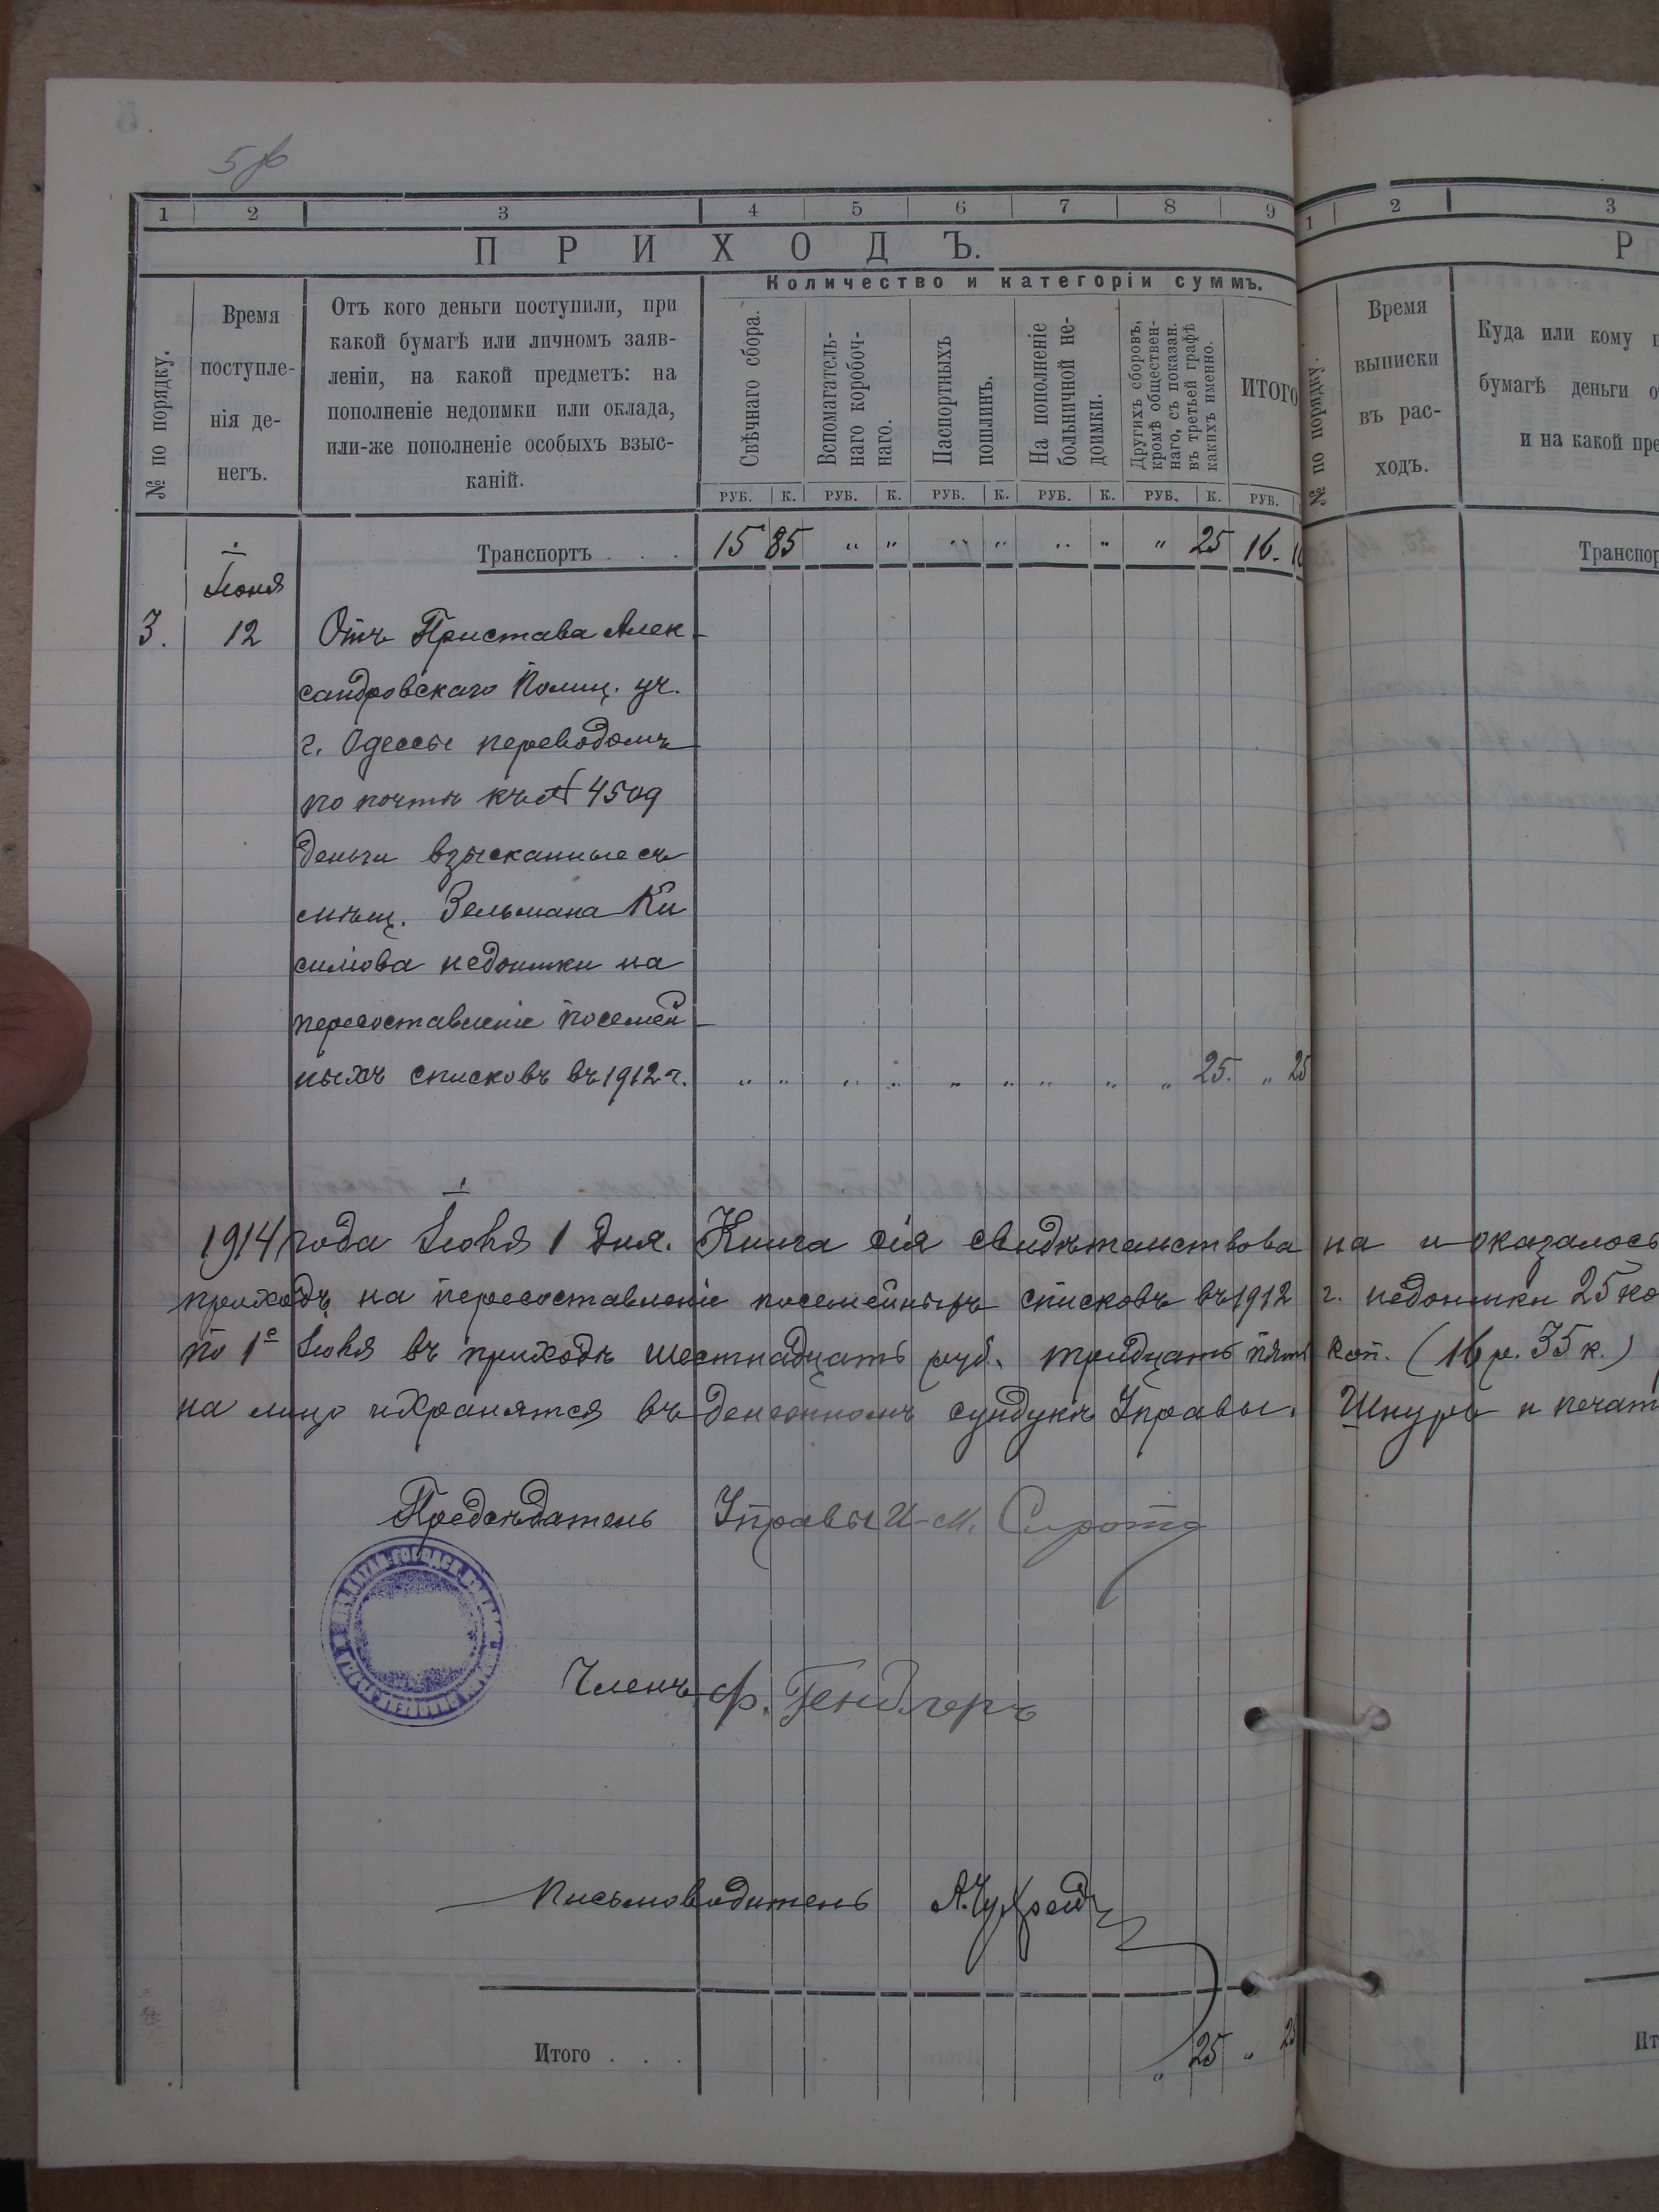 1 2 3 4 5 6 7 8 9
ПРИХОДЪ.
№ по порядку.
Время
поступле-
нія де-
негъ.
Отъ кого деньги поступили, при
какой бумагѣ или личномъ заяв-
леніи, на какой предметъ: на
пополненіе недоимки или оклада,
или-же пополненіе особыхъ взыс-
каній.
Количество и категоріи суммъ.
Свѣчнаго сбора.
Вспомагатель-
наго коробоч-
наго.
Паспортныхъ
пошлинъ.
На пополненіе
больничной не-
доимки.
Другихъ сборовъ,
кромѣ обществен-
наго, съ показан.
въ третьей графѣ
какихъ именно.
ИТОГО
РУБ. К. РУБ. К. РУБ. К. РУБ. К. РУБ. К. РУБ.
Транспортъ . . . 15 85 " " " " " " " 25 16.
Іюня
3. 12 Отъ Пристава Алек-
сандровскаго Полиц. уч.
г. Одессы переводомъ
по почтѣ къ № 4509
деньги взысканные съ
мѣщ. Зельмана Ки
симова недоимки на
пересоставленіе посемей-
ныхъ списковъ въ 1912 г. " " " " " " " " " 25. " 25
1914 года Іюня 1 дня. Книга сія свидѣтельствована и оказалось
приходъ на пересоставленіе посемейныхъ списковъ въ 1912 г. недоимки 25 ко
по 1е Іюня въ приходѣ шестнадцать руб. тридцать пять коп. (16 р. 35 к.)
на лицо и хранятся въ денежномъ сундукѣ Управы. Шнуръ и печат
Предсѣдатель Управы И-М. Сирота
Членъ Ф. Гендлеръ
Письмоводитель
Итого . . . " 25 "
1 2 3
Р
№ по порядку.
Время
выписки
въ рас-
ходъ.
Куда или кому
бумагѣ деньги
и на какой пре
Транспор
Ит